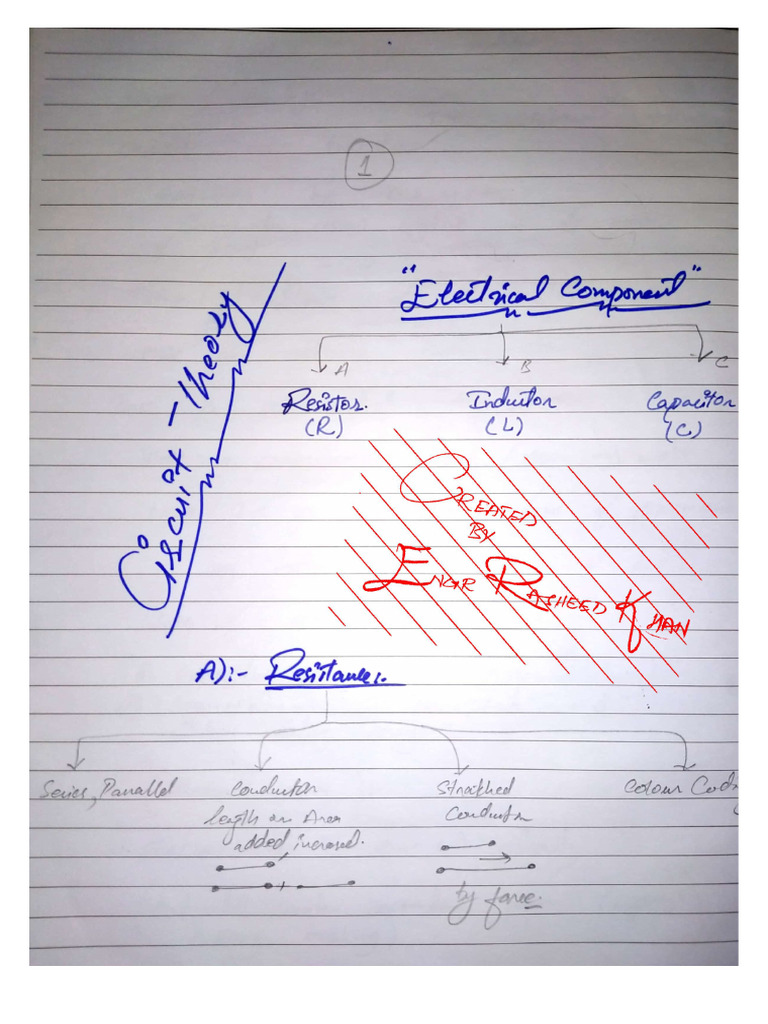 1
"Electrical Component"
Circuit - Theory
A B C
Resistor. Inductor Capacitor
(R) (L) (C)
CREATED
BY
ENGR RASHEED KHAN
A):- Resistance:-
Series, Parallel Conductor Stratched Colour Codn
length or Area Conductor
added increased.
+
by force.